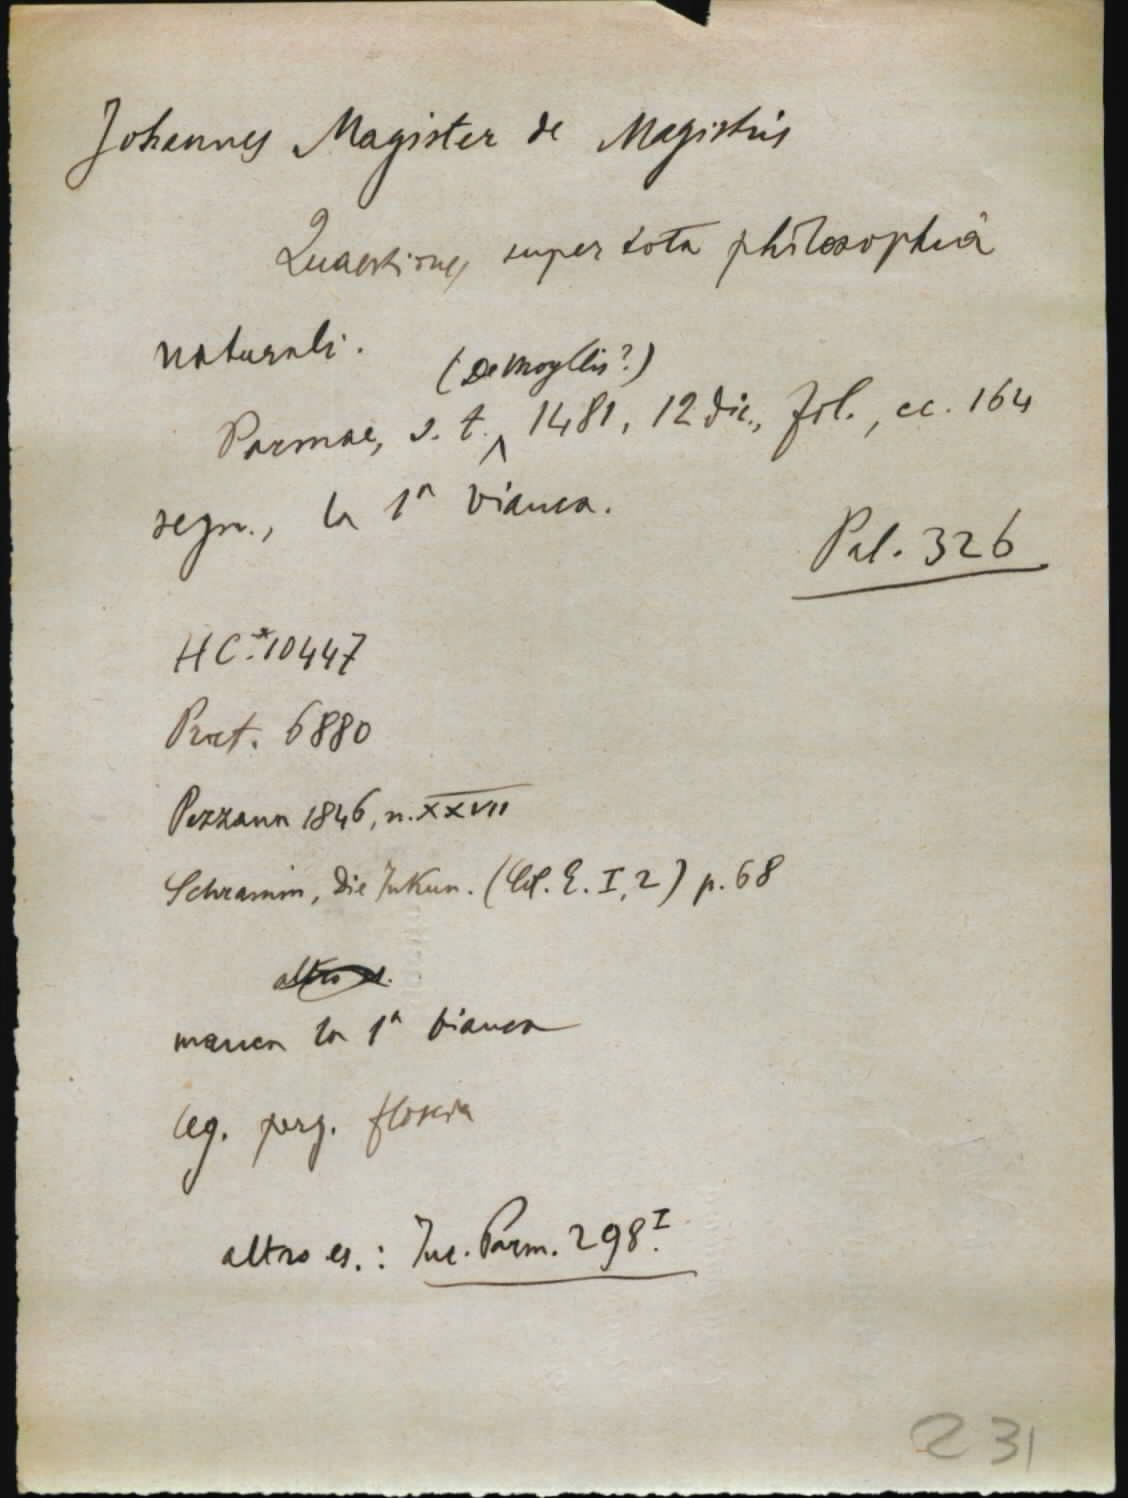 Johannes Magister de Magistris
Quaestiones super tota philosophia
naturali.
(De Moyllis?)
Parmae, s. t. 1481, 12 dic., fol., cc. 164
segn., la 1ª bianca.
Pal. 326
HC.*10447
Proct. 6880
Pezzana 1846, n. XXVII
Schramm, Die Inkun. p. 68
altro es.
manca la 1ª bianca
leg. perg. floscia
altro es.: Inc. Parm. 298 I.
231